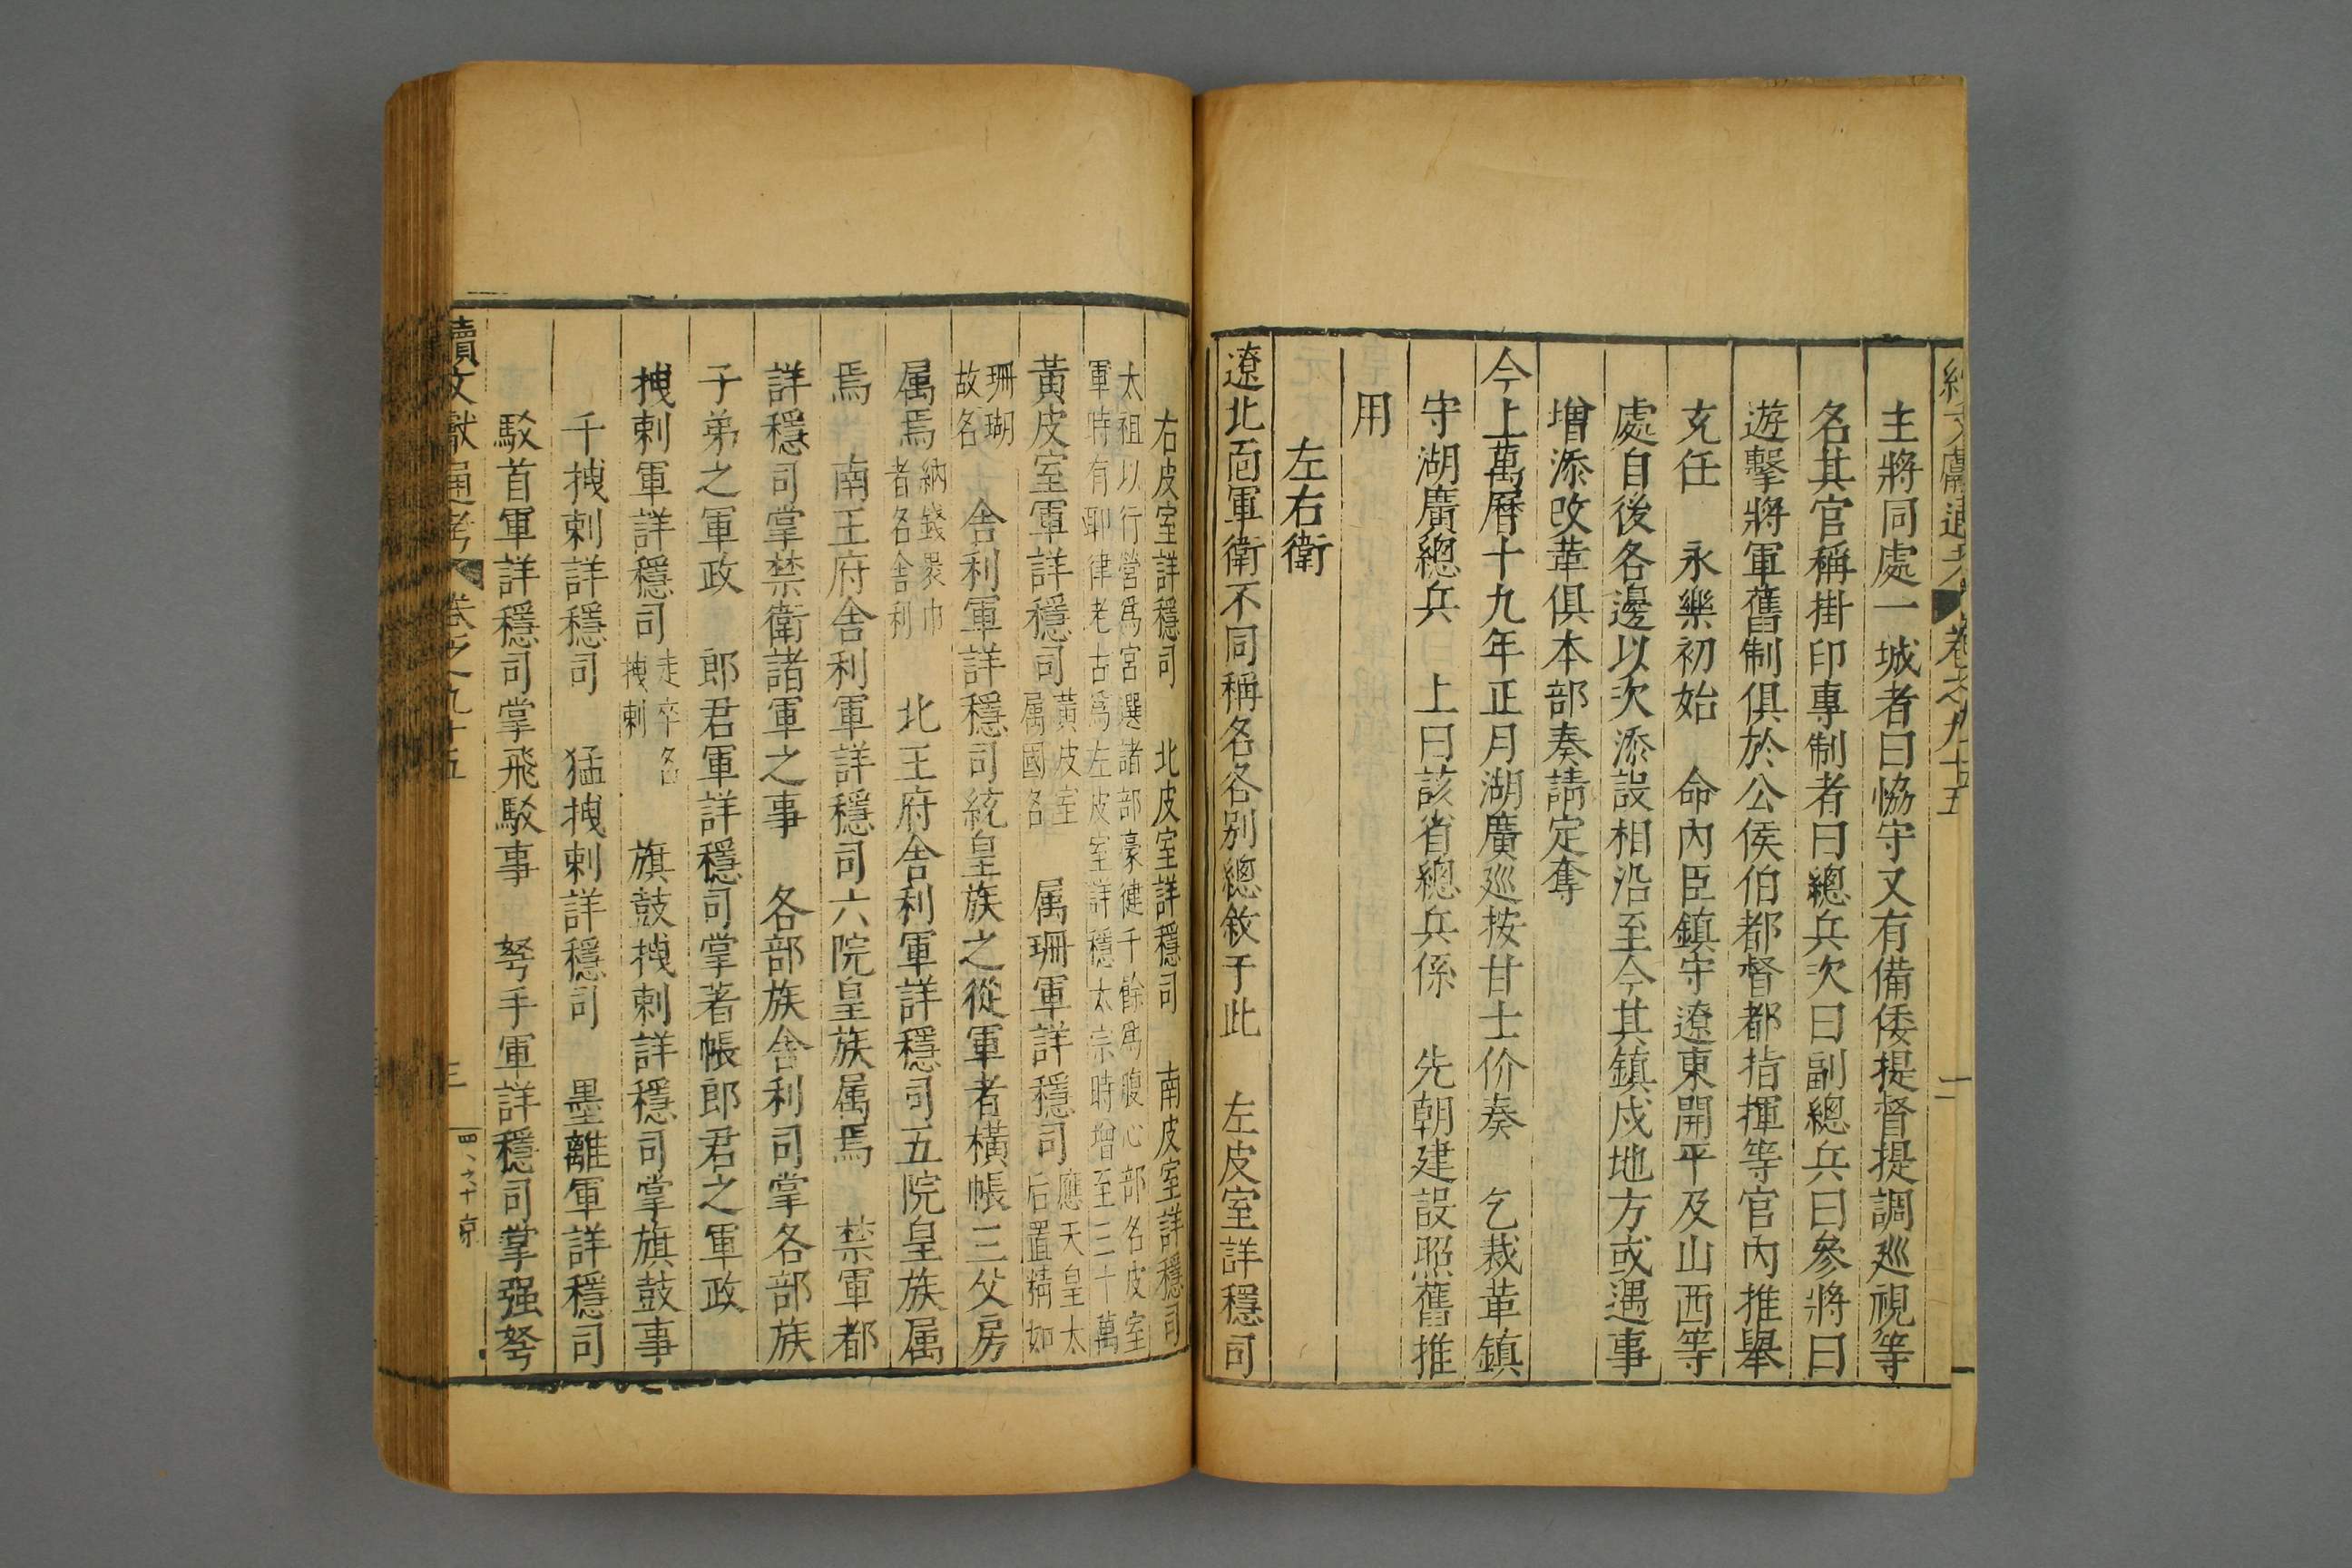 主將同處一城者曰恊守又有備倭提督提調廵視等
名其官稱掛印專制者曰總兵次曰副總兵曰參將曰
遊擊將軍舊制俱於公侯伯都督都指揮等官內推舉
充任　永樂初始　命內臣鎮守遼東開平及山西等
處自後各邊以次添設相沿至今其鎮戍地方或遇事
增添改革俱本部奏請定奪
今上萬曆十九年正月湖廣廵按甘士价奏　乞裁革鎮
守湖廣總兵　上曰該省總兵係　先朝建設照舊推
用
左右衛
遼北面軍衛不同稱名各別總敘于此　左皮室詳穩司
右皮室詳穩司　北皮室詳穩司　南皮室詳穩司
太祖以行營爲宮選諸部豪健千餘爲腹心部名皮室
軍時有耶律老古爲左皮室詳穩太宗時增至三十萬
黃皮室軍詳穩司　黃皮室属國名　属珊軍詳穩司　應天皇太后置精如
珊瑚故名　舍利軍詳穩司統皇族之從軍者橫帳三父房
属焉　納錢裹巾者名舍利　北王府舍利軍詳穩司五院皇族属
焉　南王府舍利軍詳穩司六院皇族属焉　禁軍都
詳穩司掌禁衛諸軍之事　各部族舍利司掌各部族
子弟之軍政　郎君軍詳穩司掌著帳郎君之軍政
拽剌軍詳穩司　走卒名拽剌　旗鼓拽剌詳穩司掌旗鼓事
千拽剌詳穩司　猛拽剌詳穩司　墨離軍詳穩司
駁首軍詳穩司掌飛駁事　弩手軍詳穩司掌强弩
續文獻通考　卷之九十五　三